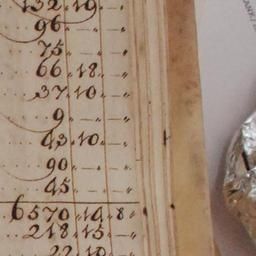 132 " 19 " "
96 " — "
75 " — "
66 " 18 " "
37 " 10 " "
9 " — "
43 " 10 " "
90 " — "
45 " — "
6570 " 14 " 8 "
218 " 15 " "
22 " 10 "